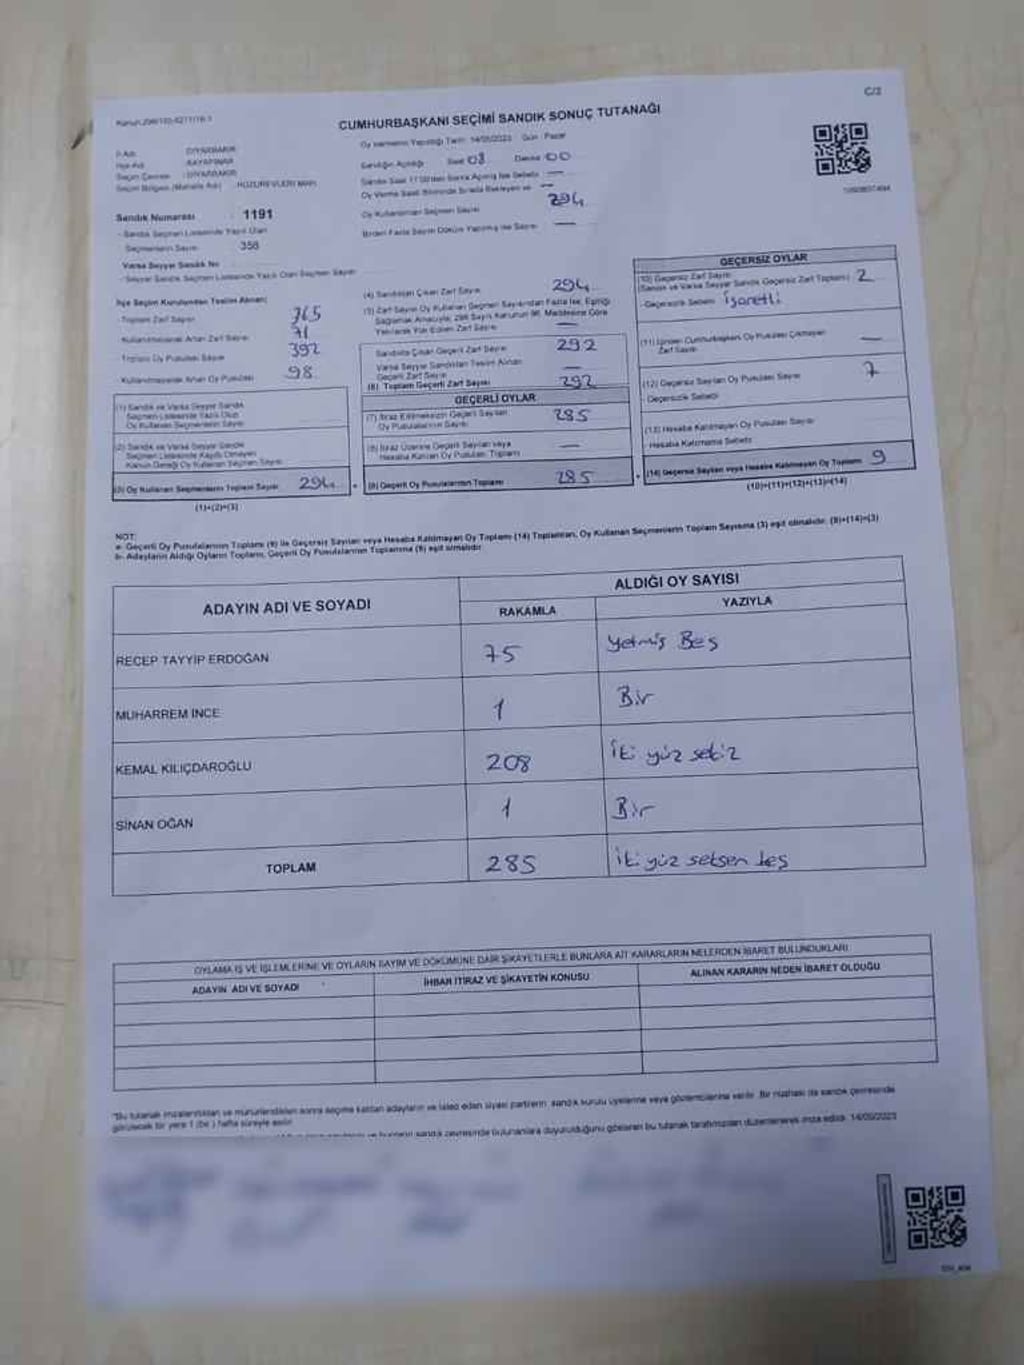 C/2
CUMHURBAŞKANI SEÇİMİ SANDIK SONUÇ TUTANAĞI
İl Adı : DİYARBAKIR
İlçe Adı : KAYAPINAR
Seçim Çevresi : DİYARBAKIR
Seçim Bölgesi (Mahalle Adı) : HUZUREVLERİ MAH.
Oy Vermenin Yapıldığı Tarih: 14/05/2023 Gün : Pazar
Sandığın Açıldığı Saat 08 Dakika 00
Sandık Saat 17:00'den Sonra Açılmış İse Sebebi —
Oy Verme Saati Bitiminde Sırada Bekleyen —
Oy Kullanılan Seçmen Sayısı 294
Birden Fazla Sayım Döküm Yapılmış İse Sayısı —
Sandık Numarası : 1191
- Sandık Seçmen Listesinde Yazılı Olan
Seçmenlerin Sayısı 358
Varsa Seyyar Sandık No
- Seyyar Sandık Seçmen Listesinde Yazılı Olan Seçmen Sayısı
İlçe Seçim Kurulundan Teslim Alınan;
- Toplam Zarf Sayısı 365
- Kullanılmayarak Artan Zarf Sayısı 71
- Toplam Oy Pusulası Sayısı 392
- Kullanılmayarak Artan Oy Pusulası 98
(1) Sandık ve Varsa Seyyar Sandık
Seçmen Listesinde Yazılı Olup
Oy Kullanan Seçmenlerin Sayısı
(2) Sandık ve Varsa Seyyar Sandık
Seçmen Listesinde Kayıtlı Olmayan
Kanun Gereği Oy Kullanan Seçmen Sayısı
(3) Oy Kullanan Seçmenlerin Toplam Sayısı 294
(1)+(2)=(3)
(4) Sandıktan Çıkan Zarf Sayısı 294
(5) Zarf Sayısı Oy Kullanan Seçmen Sayısından Fazla İse, Eşitliği
Sağlamak Amacıyla, 298 Sayılı Kanunun 98. Maddesine Göre
Yakılarak Yok Edilen Zarf Sayısı —
Sandıkta Çıkan Geçerli Zarf Sayısı 292
Varsa Seyyar Sandıktan Teslim Alınan
Geçerli Zarf Sayısı —
(6) Toplam Geçerli Zarf Sayısı 292
GEÇERLİ OYLAR
(7) İtiraz Edilmeksizin Geçerli Sayılan
Oy Pusulalarının Sayısı 285
(8) İtiraz Üzerine Geçerli Sayılan veya
Hesaba Katılan Oy Pusulası Toplamı —
(9) Geçerli Oy Pusulalarının Toplamı 285
GEÇERSİZ OYLAR
(10) Geçersiz Zarf Sayısı
(Sandık ve Varsa Seyyar Sandık Geçersiz Zarf Toplamı) 2
- Geçersizlik Sebebi İşaretli
(11) İçinden Cumhurbaşkanı Oy Pusulası Çıkmayan
Zarf Sayısı —
(12) Geçersiz Sayılan Oy Pusulası Sayısı 7
- Geçersizlik Sebebi
(13) Hesaba Katılmayan Oy Pusulası Sayısı
- Hesaba Katılmama Sebebi
(14) Geçersiz Sayılan veya Hesaba Katılmayan Oy Toplamı 9
(10)+(11)+(12)+(13)=(14)
NOT:
a- Geçerli Oy Pusulalarının Toplamı (9) ile Geçersiz Sayılan veya Hesaba Katılmayan Oy Toplamı (14) Toplamları, Oy Kullanan Seçmenlerin Toplam Sayısına (3) eşit olmalıdır. (9)+(14)=(3)
b- Adayların Aldığı Oyların Toplamı, Geçerli Oy Pusulalarının Toplamına (9) eşit olmalıdır.
ADAYIN ADI VE SOYADI
ALDIĞI OY SAYISI
RAKAMLA YAZIYLA
RECEP TAYYİP ERDOĞAN 75 Yetmiş Beş
MUHARREM İNCE 1 Bir
KEMAL KILIÇDAROĞLU 208 İki yüz sekiz
SİNAN OĞAN 1 Bir
TOPLAM 285 İki yüz seksen beş
OYLAMA İŞ VE İŞLEMLERİNE VE OYLARIN SAYIM VE DÖKÜMÜNE DAİR ŞİKAYETLERLE BUNLARA AİT KARARLARIN NELERDEN İBARET BULUNDUKLARI
ADAYIN ADI VE SOYADI İHBAR İTİRAZ VE ŞİKAYETİN KONUSU ALINAN KARARIN NEDEN İBARET OLDUĞU
"Bu tutanak imzalandıktan ve mühürlendikten sonra seçime katılan adayların ve talep eden siyasi partilerin sandık kurulu üyelerine veya gözlemcilerine verilir. Bir nüshası da sandık çevresinde
görülecek bir yere 1 (bir) hafta süreyle asılır.
sandık çevresinde bulunanlara duyurulduğunu gösteren bu tutanak tarafımızdan düzenlenerek imza edildi. 14/05/2023